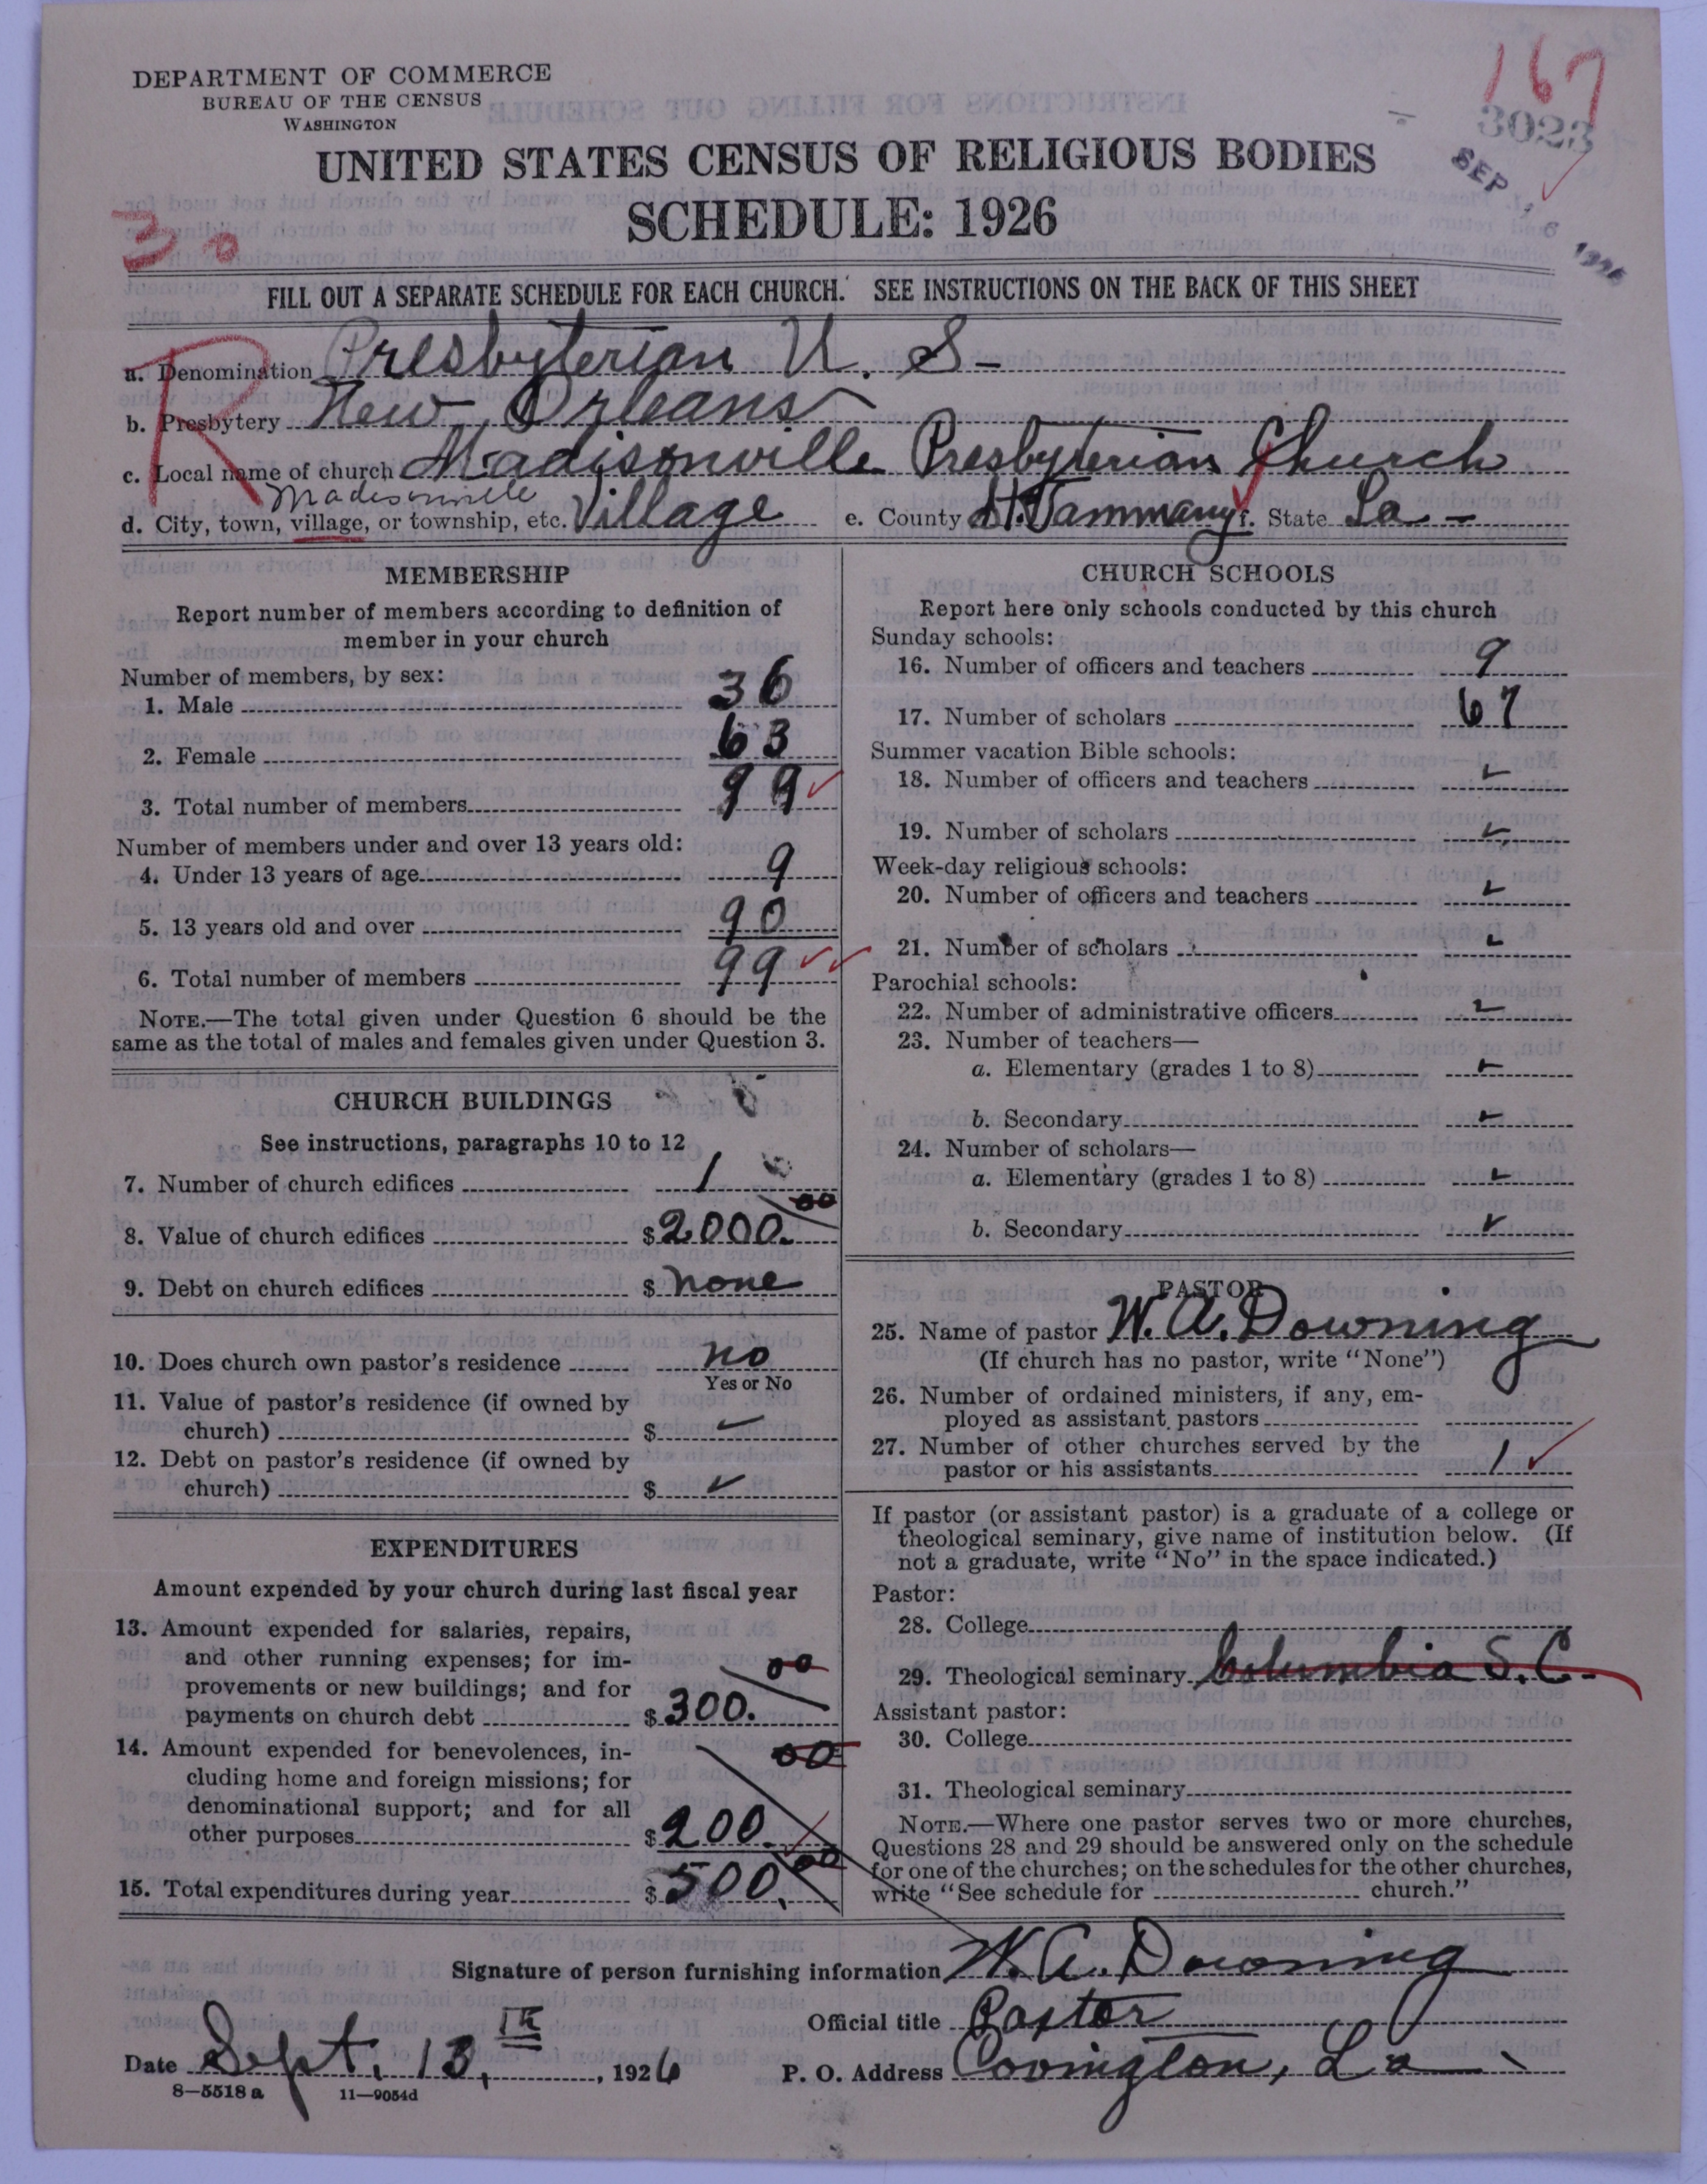 167
3023
SEP 16 1926
DEPARTMENT OF COMMERCE
BUREAU OF THE CENSUS
WASHINGTON
UNITED STATES CENSUS OF RELIGIOUS BODIES
SCHEDULE: 1926
30
FILL OUT A SEPARATE SCHEDULE FOR EACH CHURCH. SEE INSTRUCTIONS ON THE BACK OF THIS SHEET
R
a. Denomination Presbyterian U. S-
b. Presbytery New Orleans
c. Local name of church Madisonville Presbyterian Church
Madisonville
d. City, town, village, or township, etc. Village e. County St. Tammany f. State La-
MEMBERSHIP
Report number of members according to definition of
member in your church
Number of members, by sex:
1. Male 36
2. Female 63
3. Total number of members 99 ✓
Number of members under and over 13 years old:
4. Under 13 years of age 9
5. 13 years old and over 90
6. Total number of members 99 ✓✓
NOTE.—The total given under Question 6 should be the
same as the total of males and females given under Question 3.
CHURCH BUILDINGS
See instructions, paragraphs 10 to 12
7. Number of church edifices 1
8. Value of church edifices $2000.00
9. Debt on church edifices $ none
10. Does church own pastor's residence no
Yes or No
11. Value of pastor's residence (if owned by
church) $ ✓
12. Debt on pastor's residence (if owned by
church) $ ✓
EXPENDITURES
Amount expended by your church during last fiscal year
13. Amount expended for salaries, repairs,
and other running expenses; for im-
provements or new buildings; and for
payments on church debt $300.00
14. Amount expended for benevolences, in-
cluding home and foreign missions; for
denominational support; and for all
other purposes $200.00 ✓
15. Total expenditures during year $500.00
CHURCH SCHOOLS
Report here only schools conducted by this church
Sunday schools:
16. Number of officers and teachers 9
17. Number of scholars 67
Summer vacation Bible schools:
18. Number of officers and teachers ✓
19. Number of scholars ✓
Week-day religious schools:
20. Number of officers and teachers ✓
21. Number of scholars ✓
Parochial schools:
22. Number of administrative officers ✓
23. Number of teachers—
a. Elementary (grades 1 to 8) ✓
b. Secondary ✓
24. Number of scholars—
a. Elementary (grades 1 to 8) ✓
b. Secondary ✓
PASTOR
25. Name of pastor W. A. Downing
(If church has no pastor, write "None")
26. Number of ordained ministers, if any, em-
ployed as assistant pastors
27. Number of other churches served by the
pastor or his assistants 1 ✓
If pastor (or assistant pastor) is a graduate of a college or
theological seminary, give name of institution below. (If
not a graduate, write "No" in the space indicated.)
Pastor:
28. College
29. Theological seminary Columbia S.C.
Assistant pastor:
30. College
31. Theological seminary
NOTE.—Where one pastor serves two or more churches,
Questions 28 and 29 should be answered only on the schedule
for one of the churches; on the schedules for the other churches,
write "See schedule for church."
Signature of person furnishing information W. A. Downing
Official title Pastor
Date Sept. 13th, 1926 P. O. Address Covington, La
8—5518a 11—9054d